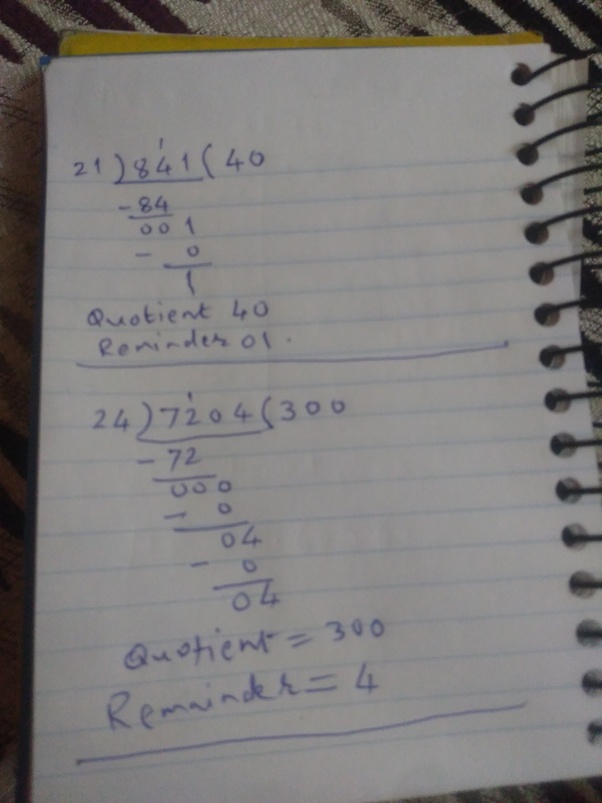 21)841(40
-84
001
- 0
1
Quotient 40
Reminder 01.
24)7204(300
-72
000
- 0
04
- 0
04
Quotient = 300
Remainder = 4